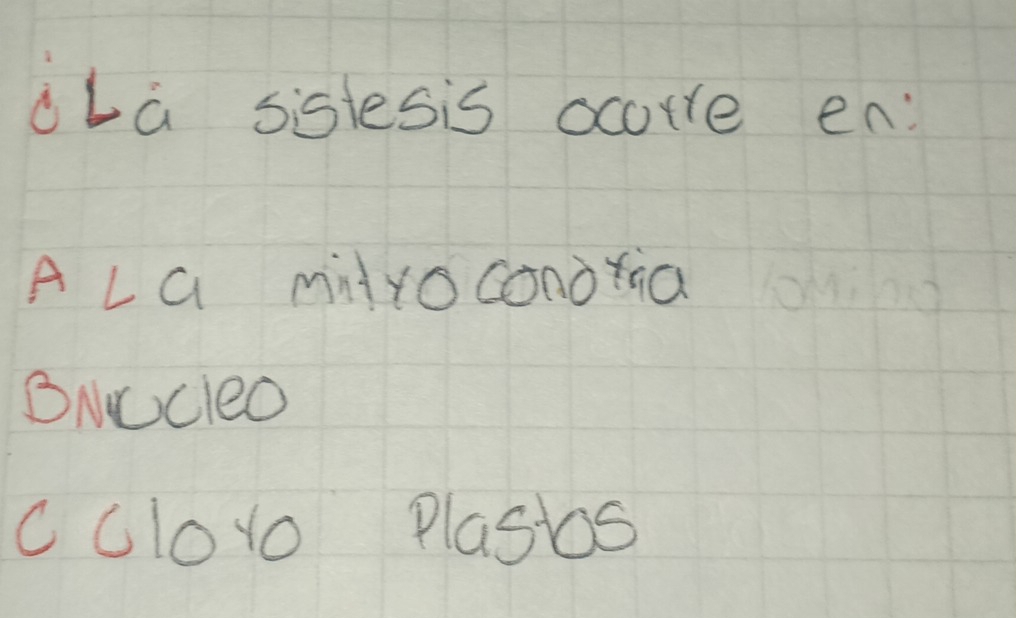 ¿La sistesis ocurre en:
A La mitrocondria
B Nucleo
C Cloro Plastos